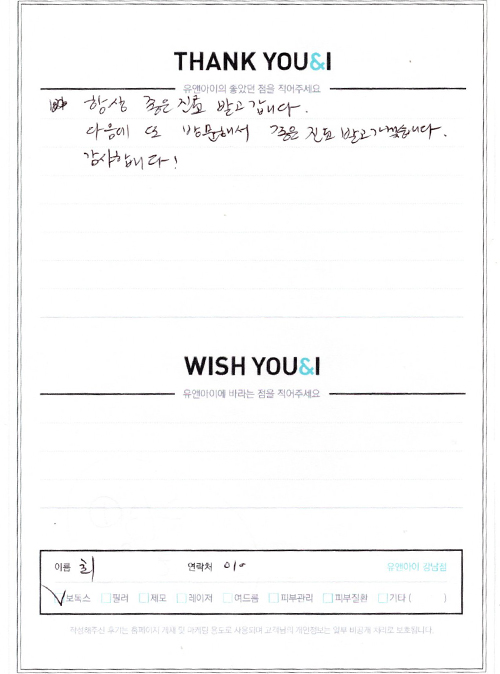 THANK YOU&I
유앤아이의 좋았던 점을 적어주세요
항상 좋은 진료 받고 갑니다.
다음에 또 방문해서 좋은 진료 받고가겠습니다.
감사합니다!
WISH YOU&I
유앤아이에 바라는 점을 적어주세요
이름 최 연락처 010 유앤아이 강남점
보톡스 필러 제모 레이저 여드름 피부관리 피부질환 기타 ( )
작성해주신 후기는 홈페이지 게재 및 마케팅 용도로 사용되며 고객님의 개인정보는 일부 비공개 처리로 보호됩니다.